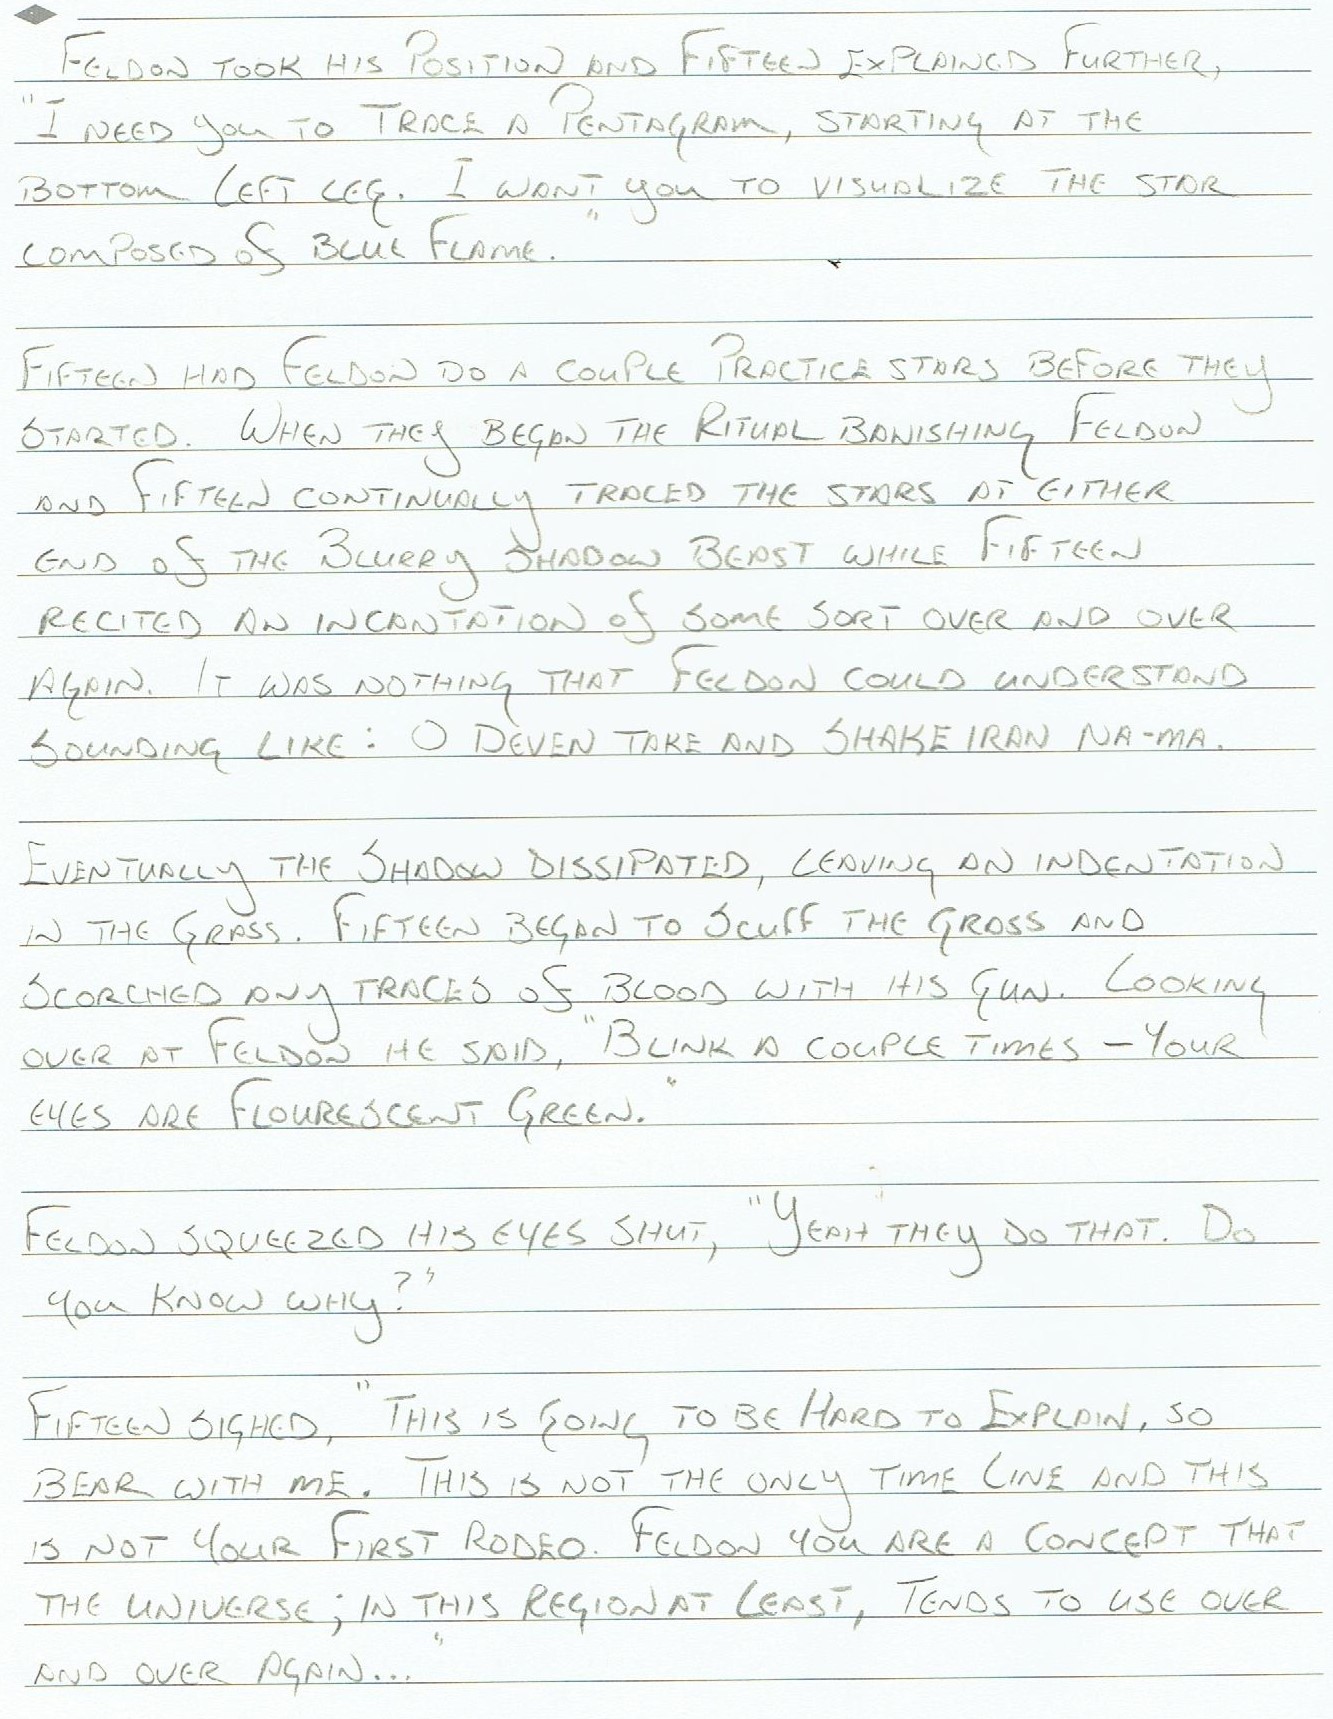 Feldon took his Position and Fifteen Explained Further,
"I need you to Trace a Pentagram, starting at the
bottom Left leg. I want you to visualize the star
composed of Blue Flame."
Fifteen had Feldon do a couple Practice stars before they
started. When they began the Ritual Banishing Feldon
and Fifteen continually traced the stars at either
end of the Blurry Shadow Beast while Fifteen
recited an incantation of some sort over and over
again. It was nothing that Feldon could understand
sounding like: O Deven take and shake Iran na-ma.
Eventually the Shadow dissipated, leaving an indentation
in the Grass. Fifteen began to scuff the Grass and
scorched any traces of Blood with his Gun. Looking
over at Feldon he said, "Blink a couple times – Your
eyes are Flourescent Green."
Feldon squeezed his eyes shut, "Yeah they do that. Do
you know why?"
Fifteen sighed, "This is going to be Hard to Explain, so
bear with me. This is not the only time Line and this
is not your First Rodeo. Feldon you are a concept that
the universe; in this region at Least, Tends to use over
and over again..."